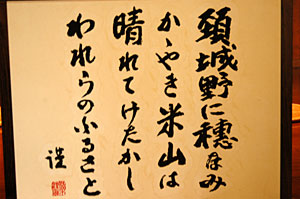 頸城野に穂なみ
かゞやき米山は
晴れてけだかし
われらのふるさと
謹